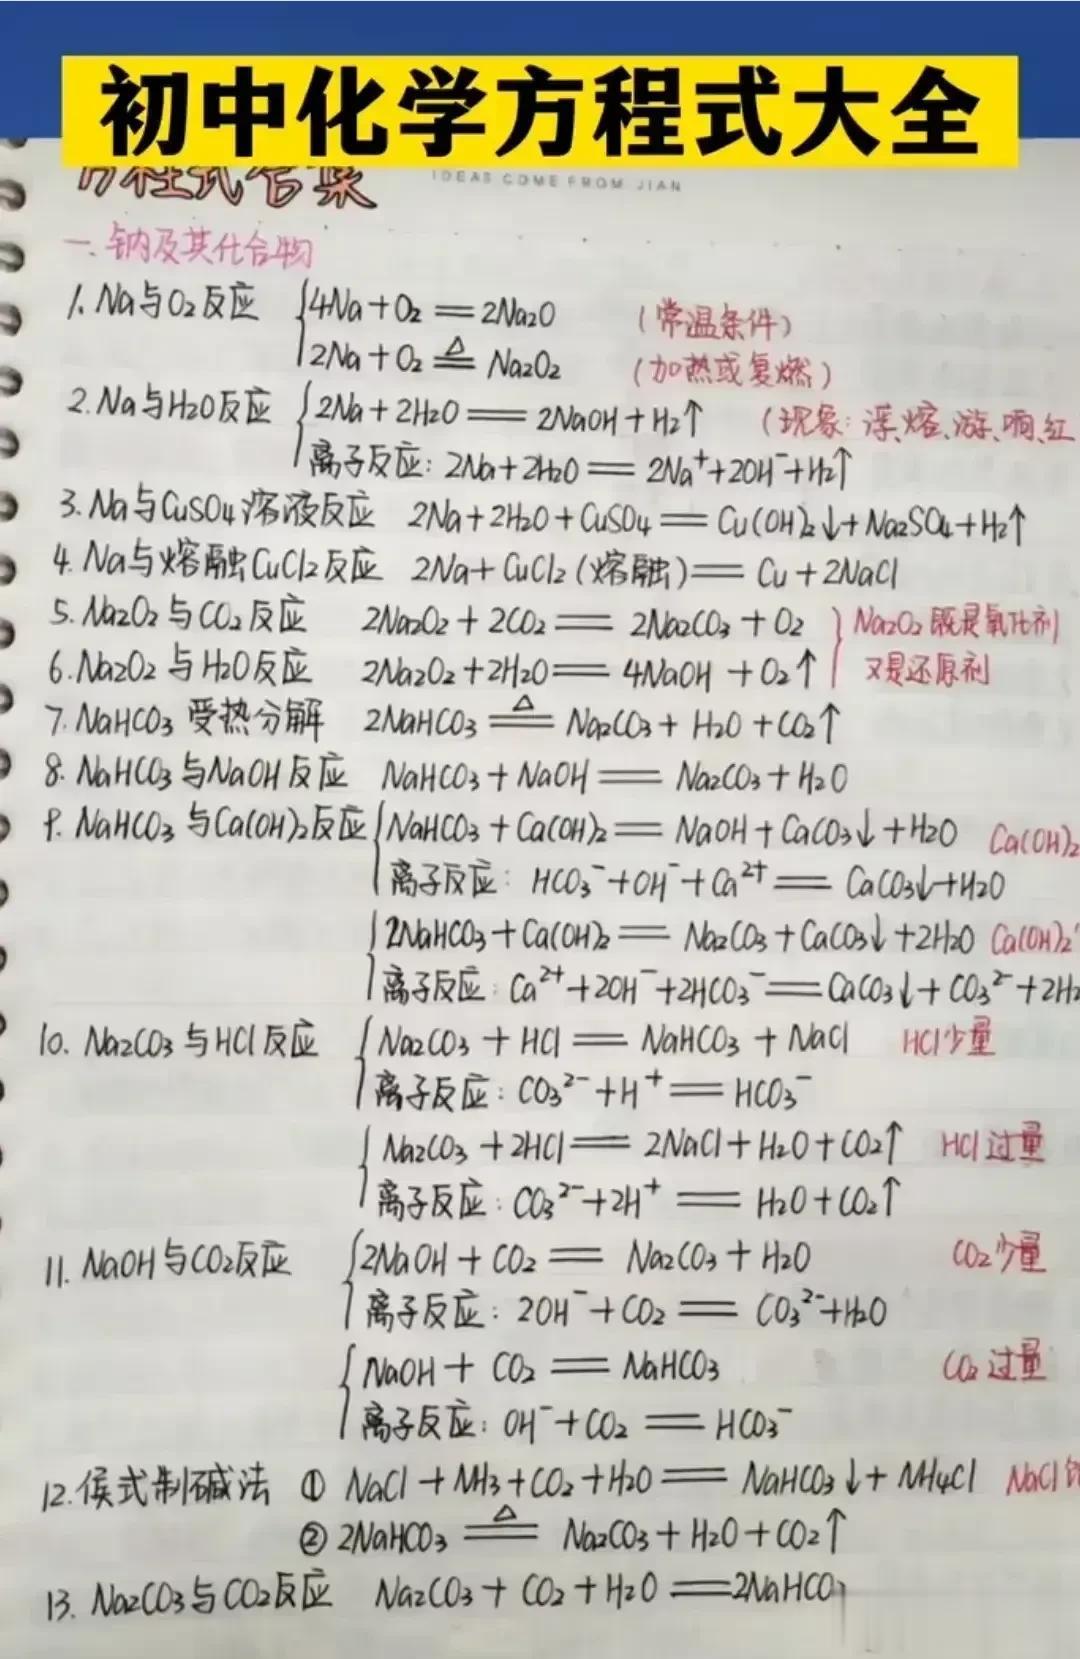 初中化学方程式大全
方程式答案
IDEAS COME FROM JIAN
一.钠及其化合物
1. Na与O₂反应 4Na+O₂══2Na₂O (常温条件)
2Na+O₂≜Na₂O₂ (加热或复燃)
2. Na与H₂O反应 2Na+2H₂O══2NaOH+H₂↑ (现象:浮、熔、游、响、红
离子反应:2Na+2H₂O══2Na⁺+2OH⁻+H₂↑
3. Na与CuSO₄溶液反应 2Na+2H₂O+CuSO₄══Cu(OH)₂↓+Na₂SO₄+H₂↑
4. Na与熔融CuCl₂反应 2Na+CuCl₂(熔融)══Cu+2NaCl
5. Na₂O₂与CO₂反应 2Na₂O₂+2CO₂══2Na₂CO₃+O₂ Na₂O₂既是氧化剂
6. Na₂O₂与H₂O反应 2Na₂O₂+2H₂O══4NaOH+O₂↑ 又是还原剂
7. NaHCO₃受热分解 2NaHCO₃≜Na₂CO₃+H₂O+CO₂↑
8. NaHCO₃与NaOH反应 NaHCO₃+NaOH══Na₂CO₃+H₂O
9. NaHCO₃与Ca(OH)₂反应 NaHCO₃+Ca(OH)₂══NaOH+CaCO₃↓+H₂O Ca(OH)₂
离子反应:HCO₃⁻+OH⁻+Ca²⁺══CaCO₃↓+H₂O
2NaHCO₃+Ca(OH)₂══Na₂CO₃+CaCO₃↓+2H₂O Ca(OH)₂
离子反应:Ca²⁺+2OH⁻+2HCO₃⁻══CaCO₃↓+CO₃²⁻+2H₂
10. Na₂CO₃与HCl反应 Na₂CO₃+HCl══NaHCO₃+NaCl HCl少量
离子反应:CO₃²⁻+H⁺══HCO₃⁻
Na₂CO₃+2HCl══2NaCl+H₂O+CO₂↑ HCl过量
离子反应:CO₃²⁻+2H⁺══H₂O+CO₂↑
11. NaOH与CO₂反应 2NaOH+CO₂══Na₂CO₃+H₂O CO₂少量
离子反应:2OH⁻+CO₂══CO₃²⁻+H₂O
NaOH+CO₂══NaHCO₃ CO₂过量
离子反应:OH⁻+CO₂══HCO₃⁻
12. 侯式制碱法 ① NaCl+NH₃+CO₂+H₂O══NaHCO₃↓+NH₄Cl NaCl
② 2NaHCO₃≜Na₂CO₃+H₂O+CO₂↑
13. Na₂CO₃与CO₂反应 Na₂CO₃+CO₂+H₂O══2NaHCO₃